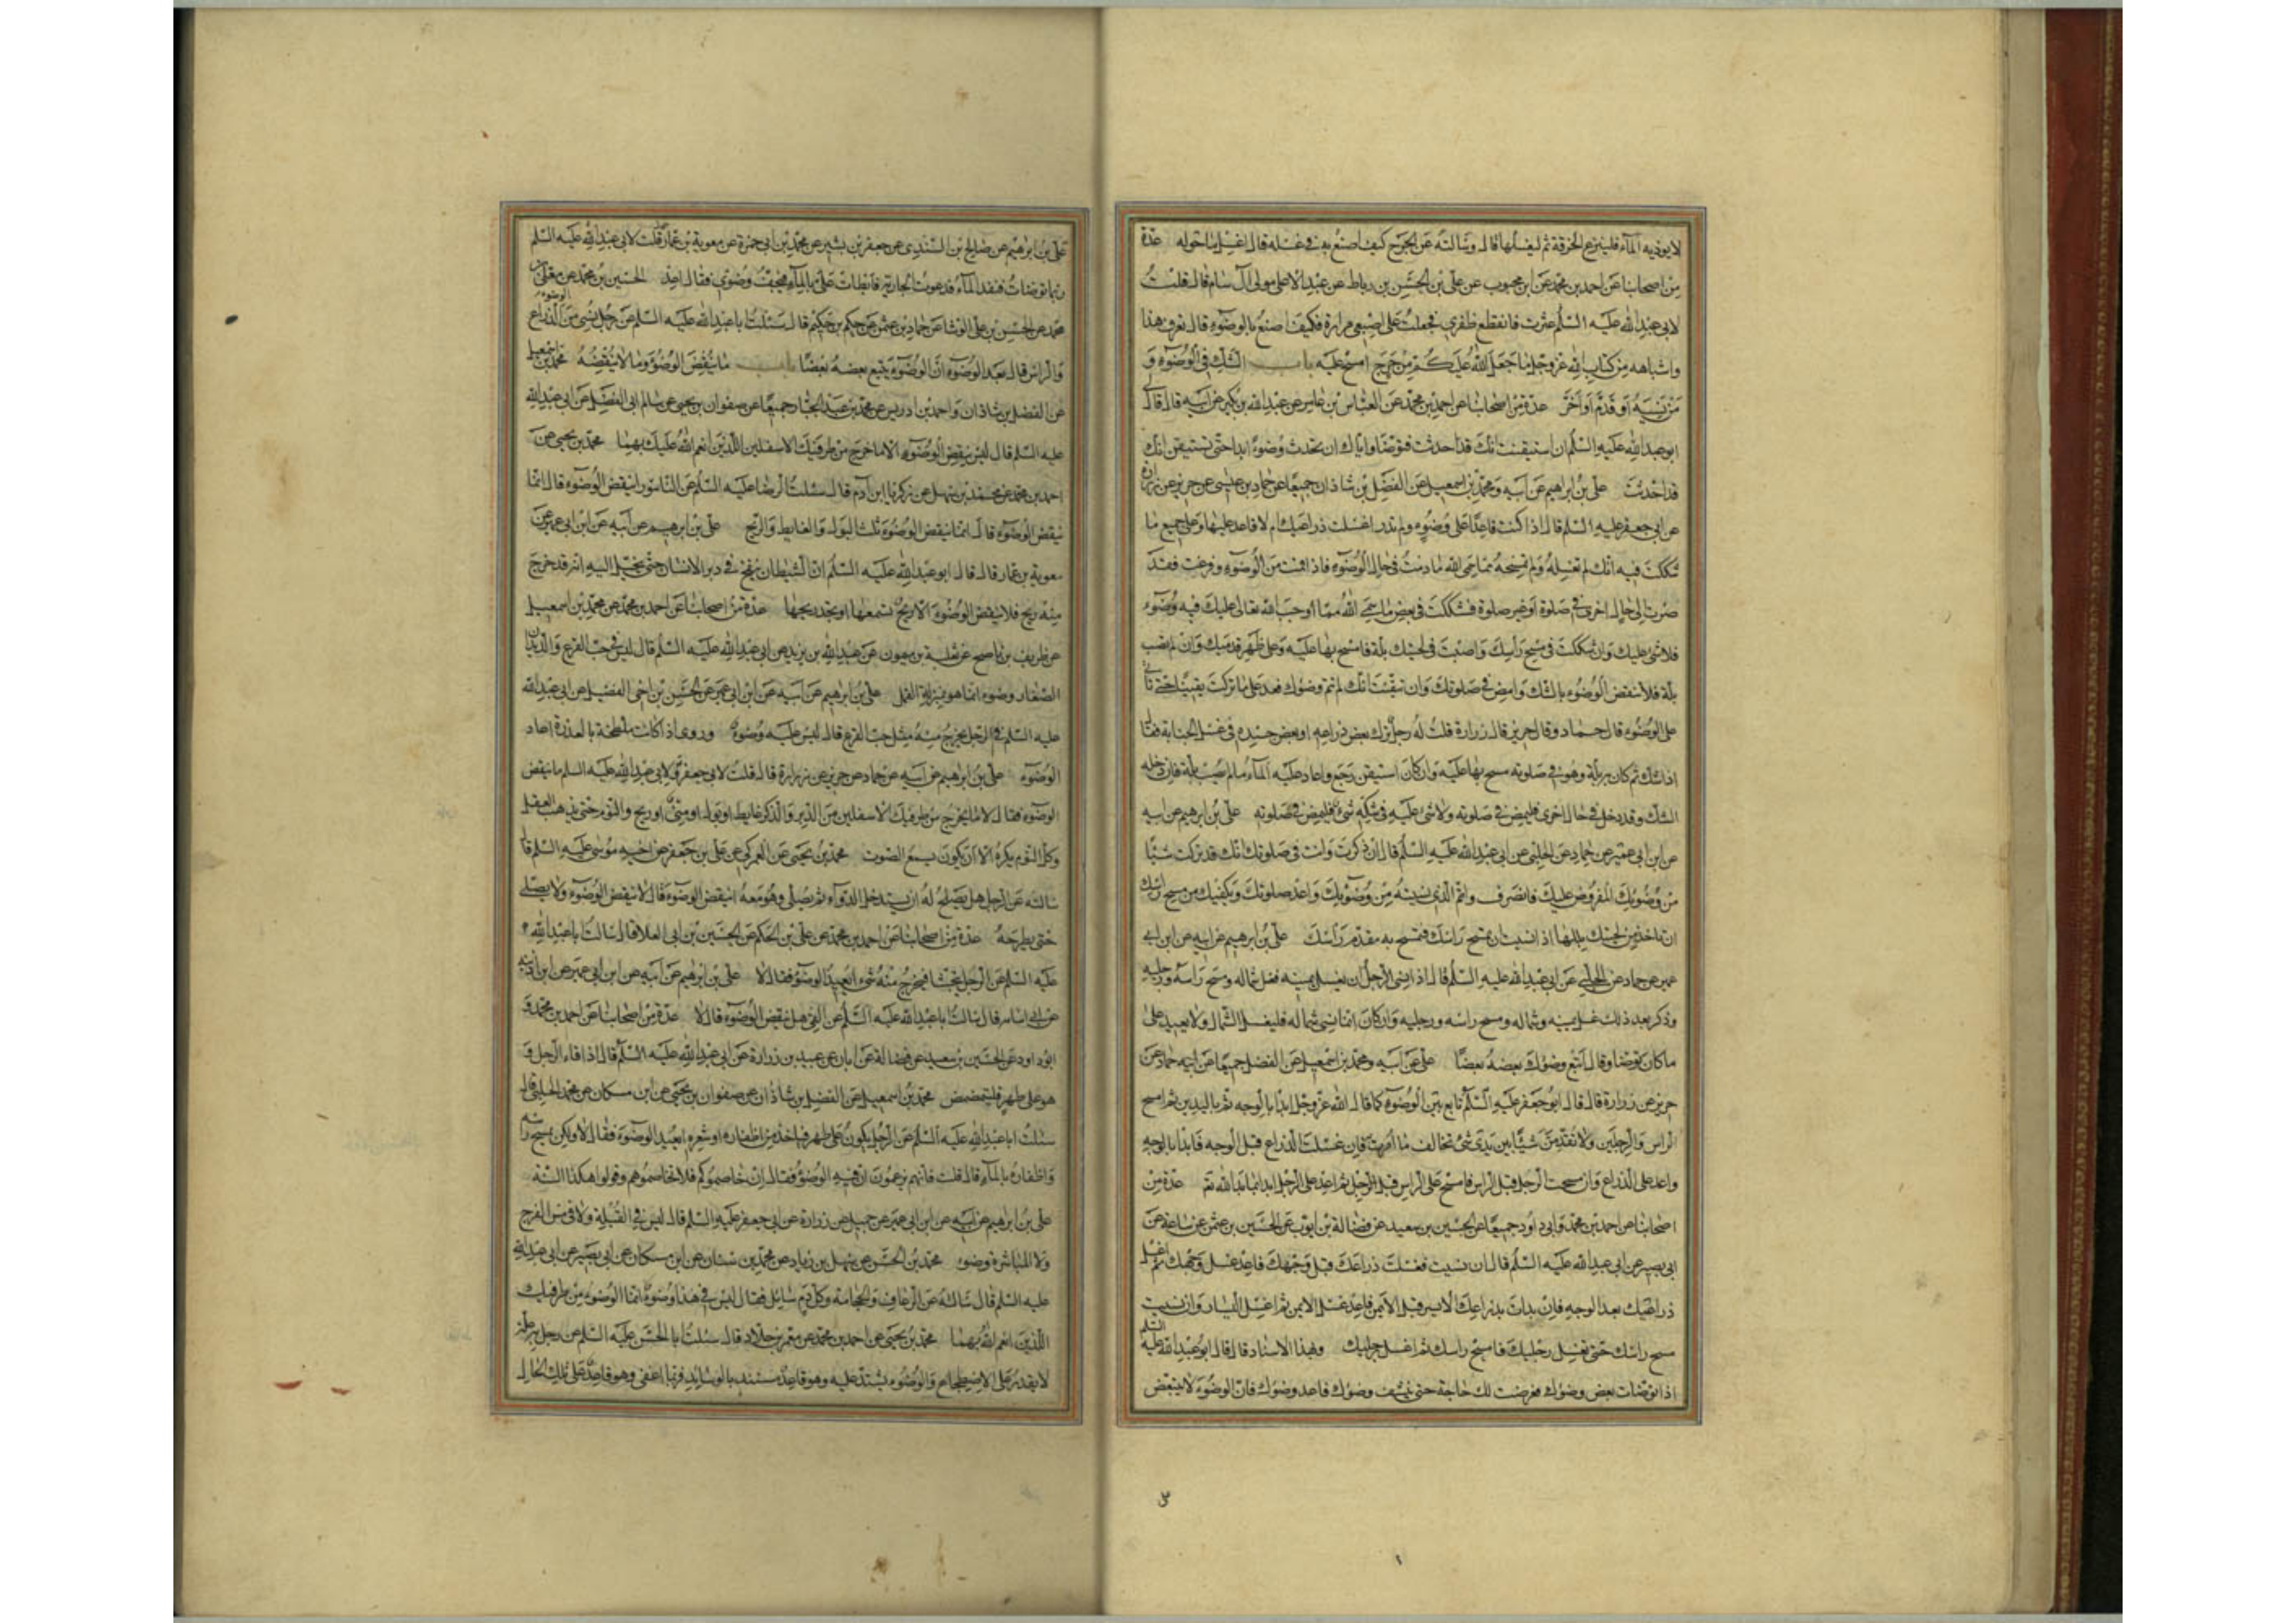 لا يوذيه الماء فلينزع الخرقة ثم ليغسلها قال وسالته عن الجرح كيف اصنع به فى غسله قال اغسل ما حوله عدة
من اصحابنا عن احمد بن محمد عن ابن محبوب عن على بن الحسن بن رباط عن عبد الاعلى مولى آل سام قال قلت
لابى عبد الله عليه السلم عثرت فانقطع ظفرى فجعلت على اصبعى مرارة فكيف اصنع بالوضوء قال تعرف هذا
واشباهه من كتاب الله عز وجل ما جعل الله عليكم من حرج امسح عليه باب الشك فى الوضوء و
من نسيه او قدم او اخر عدة من اصحابنا عن احمد بن محمد عن العباس بن عامر عن عبد الله بن بكير عن ابيه قال قال لى
ابو عبد الله عليه السلم ان استيقنت انك قد احدثت فتوضا واياك ان تحدث وضوءا ابدا حتى تستيقن انك
قد احدثت على بن ابراهيم عن ابيه ومحمد بن اسمعيل عن الفضل بن شاذان جميعا عن حماد بن عيسى عن حريز عن زرارة
عن ابى جعفر عليه السلم قال اذا كنت قاعدا على وضوء ولم تدر اغسلت ذراعيك ام لا فاعد عليها وعلى جميع ما
شككت فيه انك لم تغسله ولم تمسحه مما سمى الله ما دمت فى حال الوضوء فاذا قمت من الوضوء وفرغت فقد
صرت الى حال اخرى فى صلوة او غير صلوة فشككت فى بعض ما سمى الله مما اوجب الله تعالى عليك فيه وضوء
فلا شئ عليك وان شككت فى مسح راسك واصبت فى لحيتك بلة فامسح بها عليه وعلى ظهر قدميك وان لم تصب
بلة فلا تنقض الوضوء بالشك وامض فى صلوتك وان تيقنت انك لم تتم وضوئك فعد على ما تركت يقينا حتى تاتى
على الوضوء قال حماد وقال حريز قال زرارة قلت له رجل ترك بعض ذراعه او بعض جسده فى غسل الجنابة فقال
اذا شك ثم كان به بلة وهو فى صلوته مسح بها عليه وان كان استيقن رجع واعاد عليه الماء ما لم يصب بلة فان دخله
الشك وقد دخل فى حال اخرى فليمض فى صلوته ولا شئ عليه فى شكه شئ فليمض فى صلوته على بن ابراهيم عن ابيه
عن ابن ابى عمير عن حماد عن الحلبى عن ابى عبد الله عليه السلم قال ان ذكرت وانت فى صلوتك انك قد تركت شيئا
من وضوئك المفروض عليك فانصرف واتم الذى نسيته من وضوئك واعد صلوتك ويكفيك من مسح راسك
ان تاخذ من لحيتك بللها اذا نسيت ان تمسح راسك فتمسح به مقدم راسك على بن ابرهيم عن ابيه عن ابن ابى
عمير عن حماد عن الحلبى عن ابى عبد الله عليه السلم قال اذا نسى الرجل ان يغسل يمينه فغسل شماله ومسح راسه ورجليه
وذكر بعد ذلك غسل يمينه وشماله ومسح راسه ورجليه وان كان انما نسى شماله فليغسل الشمال ولا يعيد على
ما كان توضا وقال اتبع وضوئك بعضه بعضا على عن ابيه ومحمد بن اسمعيل عن الفضل جميعا عن ابيه حماد عن
حريز عن زرارة قال قال ابو جعفر عليه السلم تابع بين الوضوء كما قال الله عز وجل ابدا بالوجه ثم باليدين ثم امسح
الراس والرجلين ولا تقدمن شيئا بين يدى شئ تخالف ما امرت فان غسلت الذراع قبل الوجه فابدا بالوجه
واعد على الذراع وان مسحت الرجل قبل الراس فامسح على الراس قبل الرجل ثم اعد على الرجل ابدا بما بدا الله ثم عدة من
اصحابنا عن احمد بن محمد وابى داود جميعا عن الحسين بن سعيد عن فضالة بن ايوب عن الحسين بن عثمن عن سماعة عن
ابى بصير عن ابى عبد الله عليه السلم قال ان نسيت فغسلت ذراعك قبل وجهك فاعد غسل وجهك ثم اغسل
ذراعيك بعد الوجه فان بدات بذراعك الايسر قبل الايمن فاعد غسل الايمن ثم اغسل اليسار وان نسيت
مسح راسك حتى تغسل رجليك فامسح راسك ثم اغسل رجليك وبهذا الاسناد قال قال ابو عبد الله عليه السلم
اذا توضات بعض وضوئك فعرضت لك حاجة حتى ينشف وضوئك فاعد وضوئك فان الوضوء لا يتبعض
٣
١
على بن ابرهيم عن صالح بن السندى عن جعفر بن بشير عن محمد بن ابى حمزة عن معوية بن عمار قال قلت لابى عبد الله عليه السلم
ربما توضات فنفد الماء فدعوت الجارية فابطات على بالماء فيجف وضوئى فقال اعد الحسين بن محمد عن معلى بن
محمد عن الحسن بن على الوشا عن حماد بن عثمن عن حكم بن حكيم قال سئلت ابا عبد الله عليه السلم عن رجل نسى من الوضوء الذراع
والراس قال يعيد الوضوء ان الوضوء يتبع بعضه بعضا باب ما ينقض الوضوء وما لا ينقضه محمد بن اسمعيل
عن الفضل بن شاذان واحمد بن ادريس عن محمد بن عبد الجبار جميعا عن صفوان بن يحيى عن سالم ابى الفضل عن ابى عبد الله
عليه السلم قال ليس ينقض الوضوء الا ما خرج من طرفيك الاسفلين اللذين انعم الله عليك بهما محمد بن يحيى عن
احمد بن محمد عن محمد بن سهل عن زكريا ابن آدم قال سئلت الرضا عليه السلم عن الناسور اينقض الوضوء قال انما
ينقض الوضوء قال انما ينقض الوضوء ثلث البول والغايط والريح على بن ابرهيم عن ابيه عن ابن ابى عمير عن
معوية بن عمار قال قال ابو عبد الله عليه السلم ان الشيطان ينفخ فى دبر الانسان حتى يخيل اليه انه قد خرج
منه ريح فلا ينقض الوضوء الا ريح تسمعها او تجد ريحها عدة من اصحابنا عن احمد بن محمد عن محمد بن اسمعيل
عن ظريف بن ناصح عن ثعلبة بن ميمون عن عبد الله بن يزيد عن ابى عبد الله عليه السلم قال ليس فى حب القرع والديدان
الصغار وضوء انما هو بمنزلة القمل على بن ابرهيم عن ابيه عن ابن ابى عمير عن الحسن بن اخى الفضيل عن ابى عبد الله
عليه السلم فى الرجل يخرج منه مثل حب القرع قال ليس عليه وضوء وروى اذا كانت ملطخة بالعذرة اعاد
الوضوء على بن ابرهيم عن ابيه عن حماد عن حريز عن زرارة قال قلت لابى جعفر ولابى عبد الله عليه السلم ما ينقض
الوضوء فقالا ما يخرج من طرفيك الاسفلين من الدبر والذكر غايط او بول او منى او ريح والنوم حتى يذهب العقل
وكل النوم يكره الا ان يكون يسمع الصوت محمد بن يحيى عن العمركى عن على بن جعفر عن اخيه موسى عليه السلم قال
سالته عن الرجل هل يصلح له ان يستدخل الدواء ثم يصلى وهو معه اينقض الوضوء قال لا ينقض الوضوء ولا يصلى
حتى يطرحه عدة من اصحابنا عن احمد بن محمد عن على بن الحكم عن الحسين بن ابى العلا قال سالت ابا عبد الله
عليه السلم عن الرجل يتجشا فيخرج منه شئ ايعيد الوضوء فقال لا على بن ابرهيم عن ابيه عن ابن ابى عمير عن ابن اذينة
عن ابى اسامة قال سالت ابا عبد الله عليه السلم عن القئ هل ينقض الوضوء قال لا عدة من اصحابنا عن احمد بن محمد و
ابو داود عن الحسين بن سعيد عن فضالة عن ابان عن عبيد بن زرارة عن ابى عبد الله عليه السلم قال اذا قاء الرجل و
هو على طهر فليتمضمض محمد بن اسمعيل عن الفضل بن شاذان عن صفوان بن يحيى عن ابن مسكان عن محمد الحلبى قال
سئلت ابا عبد الله عليه السلم عن الرجل يكون على طهر فياخذ من اظفاره او شعره ايعيد الوضوء فقال لا ولكن يمسح راسه
واظفاره بالماء قال قلت فانهم يزعمون ان فيه الوضوء فقال ان خاصموكم فلا تخاصموهم وقولوا هكذا السنة
على بن ابرهيم عن ابيه عن ابن ابى عمير عن جميل عن زرارة عن ابى جعفر عليه السلم قال ليس فى القبلة ولا فى مس الفرج
ولا المباشرة وضوء محمد بن الحسن عن سهل بن زياد عن محمد بن سنان عن ابن مسكان عن ابى بصير عن ابى عبد الله
عليه السلم قال سالته عن الرعاف والحجامة وكل دم سائل فقال ليس فى هذا وضوء انما الوضوء من طرفيك
اللذين انعم الله بهما محمد بن يحيى عن احمد بن محمد عن معمر بن خلاد قال سئلت ابا الحسن عليه السلم عن رجل به علة
لا يقدر على الاضطجاع والوضوء يشتد عليه وهو قاعد مستند بالوسائد فربما اغفى وهو قاعد على تلك الحال